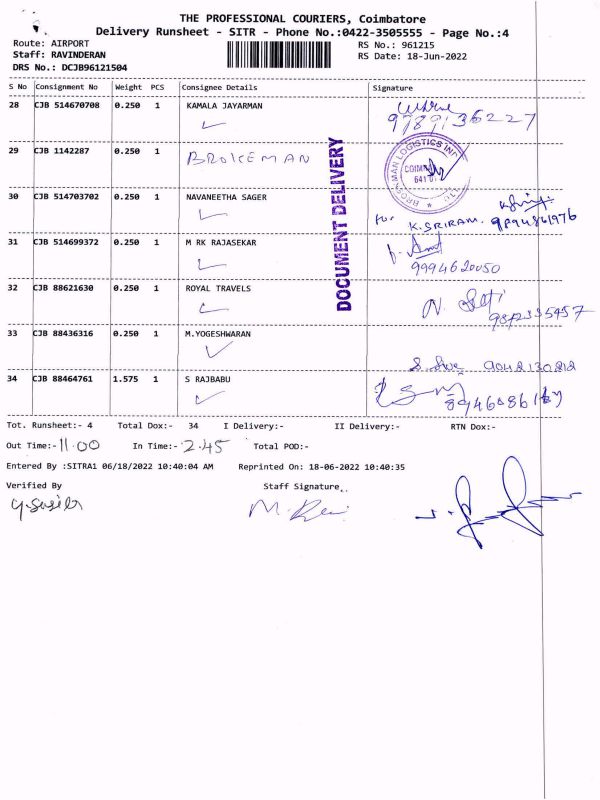 THE PROFESSIONAL COURIERS, Coimbatore
Delivery Runsheet - SITR - Phone No.:0422-3505555 - Page No.:4
Route: AIRPORT
RS No.: 961215
Staff: RAVINDERAN
RS Date: 18-Jun-2022
DRS No.: DCJB96121504
S No Consignment No Weight PCS Consignee Details Signature
28 CJB 514670708 0.250 1 KAMALA JAYARMAN
9789136227
29 CJB 1142287 0.250 1 BROKEMAN
LOGISTICS
DOCUMENT DELIVERY
30 CJB 514703702 0.250 1 NAVANEETHA SAGER
for K.SRIRAM. 9894861976
31 CJB 514699372 0.250 1 M RK RAJASEKAR
9994620050
32 CJB 88621630 0.250 1 ROYAL TRAVELS
33 CJB 88436316 0.250 1 M.YOGESHWARAN
34 CJB 88464761 1.575 1 S RAJBABU
Tot. Runsheet:- 4 Total Dox:- 34 I Delivery:- II Delivery:- RTN Dox:-
Out Time:- 11.00 In Time:- 2.45 Total POD:-
Entered By :SITRA1 06/18/2022 10:40:04 AM Reprinted On: 18-06-2022 10:40:35
Verified By Staff Signature